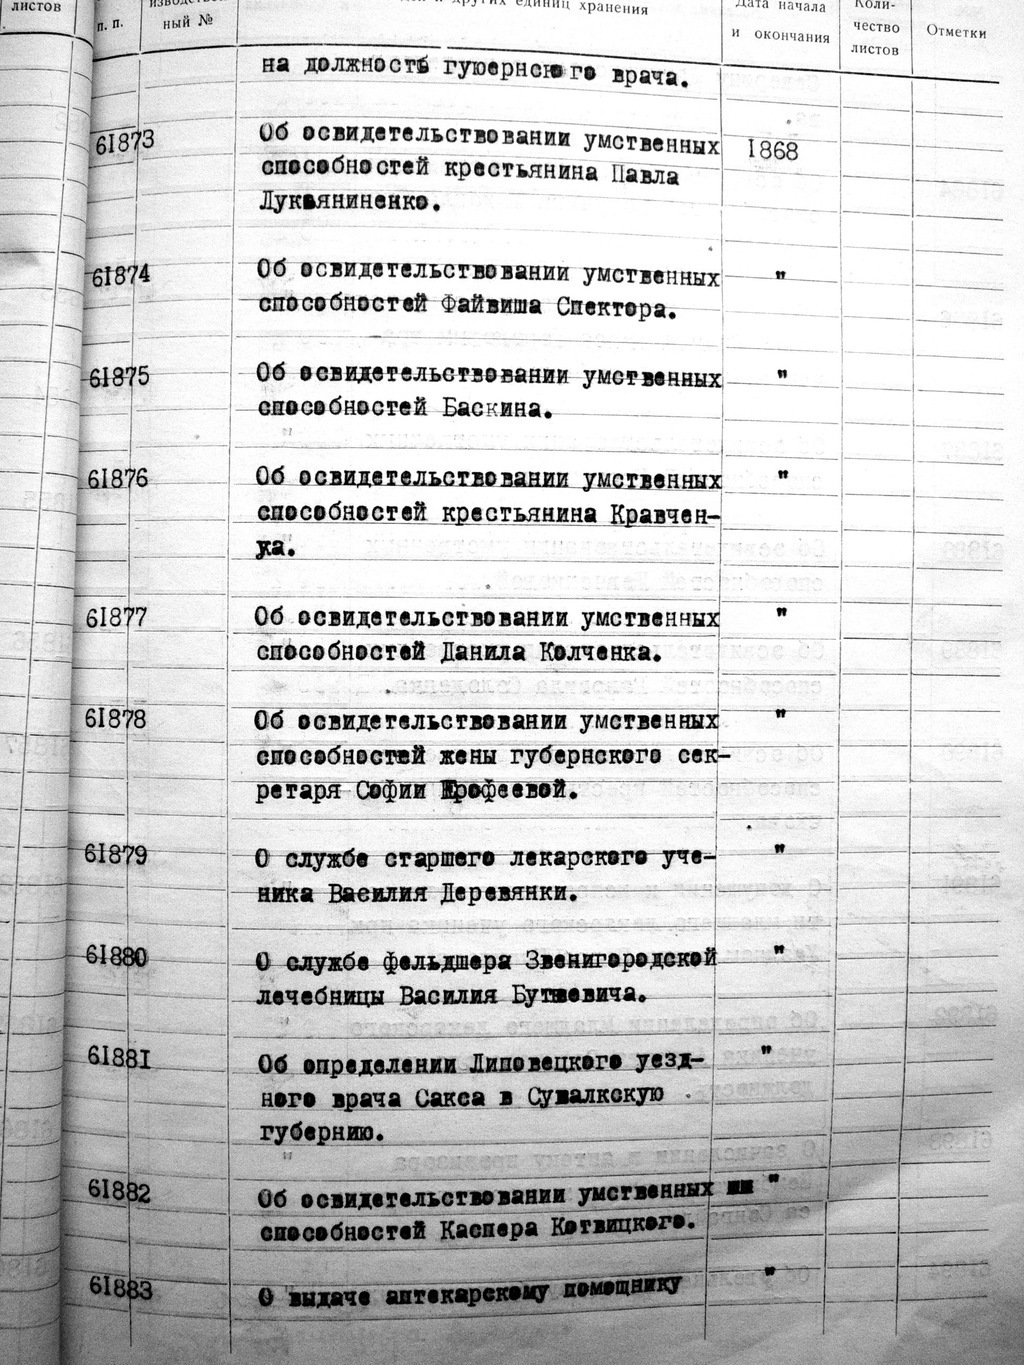 листов
п. п.
ный №
и других единиц хранения
Дата начала
и окончания
Коли-
чество
листов
Отметки
на должность губернского врача.
61873 Об освидетельствовании умственных 1868
способностей крестьянина Павла
Лукьяниненко.
61874 Об освидетельствовании умственных "
способностей Файвиша Спектора.
61875 Об освидетельствовании умственных "
способностей Баскина.
61876 Об освидетельствовании умственных "
способностей крестьянина Кравчен-
ка.
61877 Об освидетельствовании умственных "
способностей Данила Колченка.
61878 Об освидетельствовании умственных "
способностей жены губернского сек-
ретаря Софии Ерофеевой.
61879 О службе старшего лекарского уче- "
ника Василия Деревянки.
61880 О службе фельдшера Звенигородской "
лечебницы Василия
61881 Об определении Липовецкого уезд- "
ного врача Сакса в Сувалкскую
губернию.
61882 Об освидетельствовании умственных "
способностей Каспера Котвицкого.
61883 О выдаче аптекарскому помощнику "